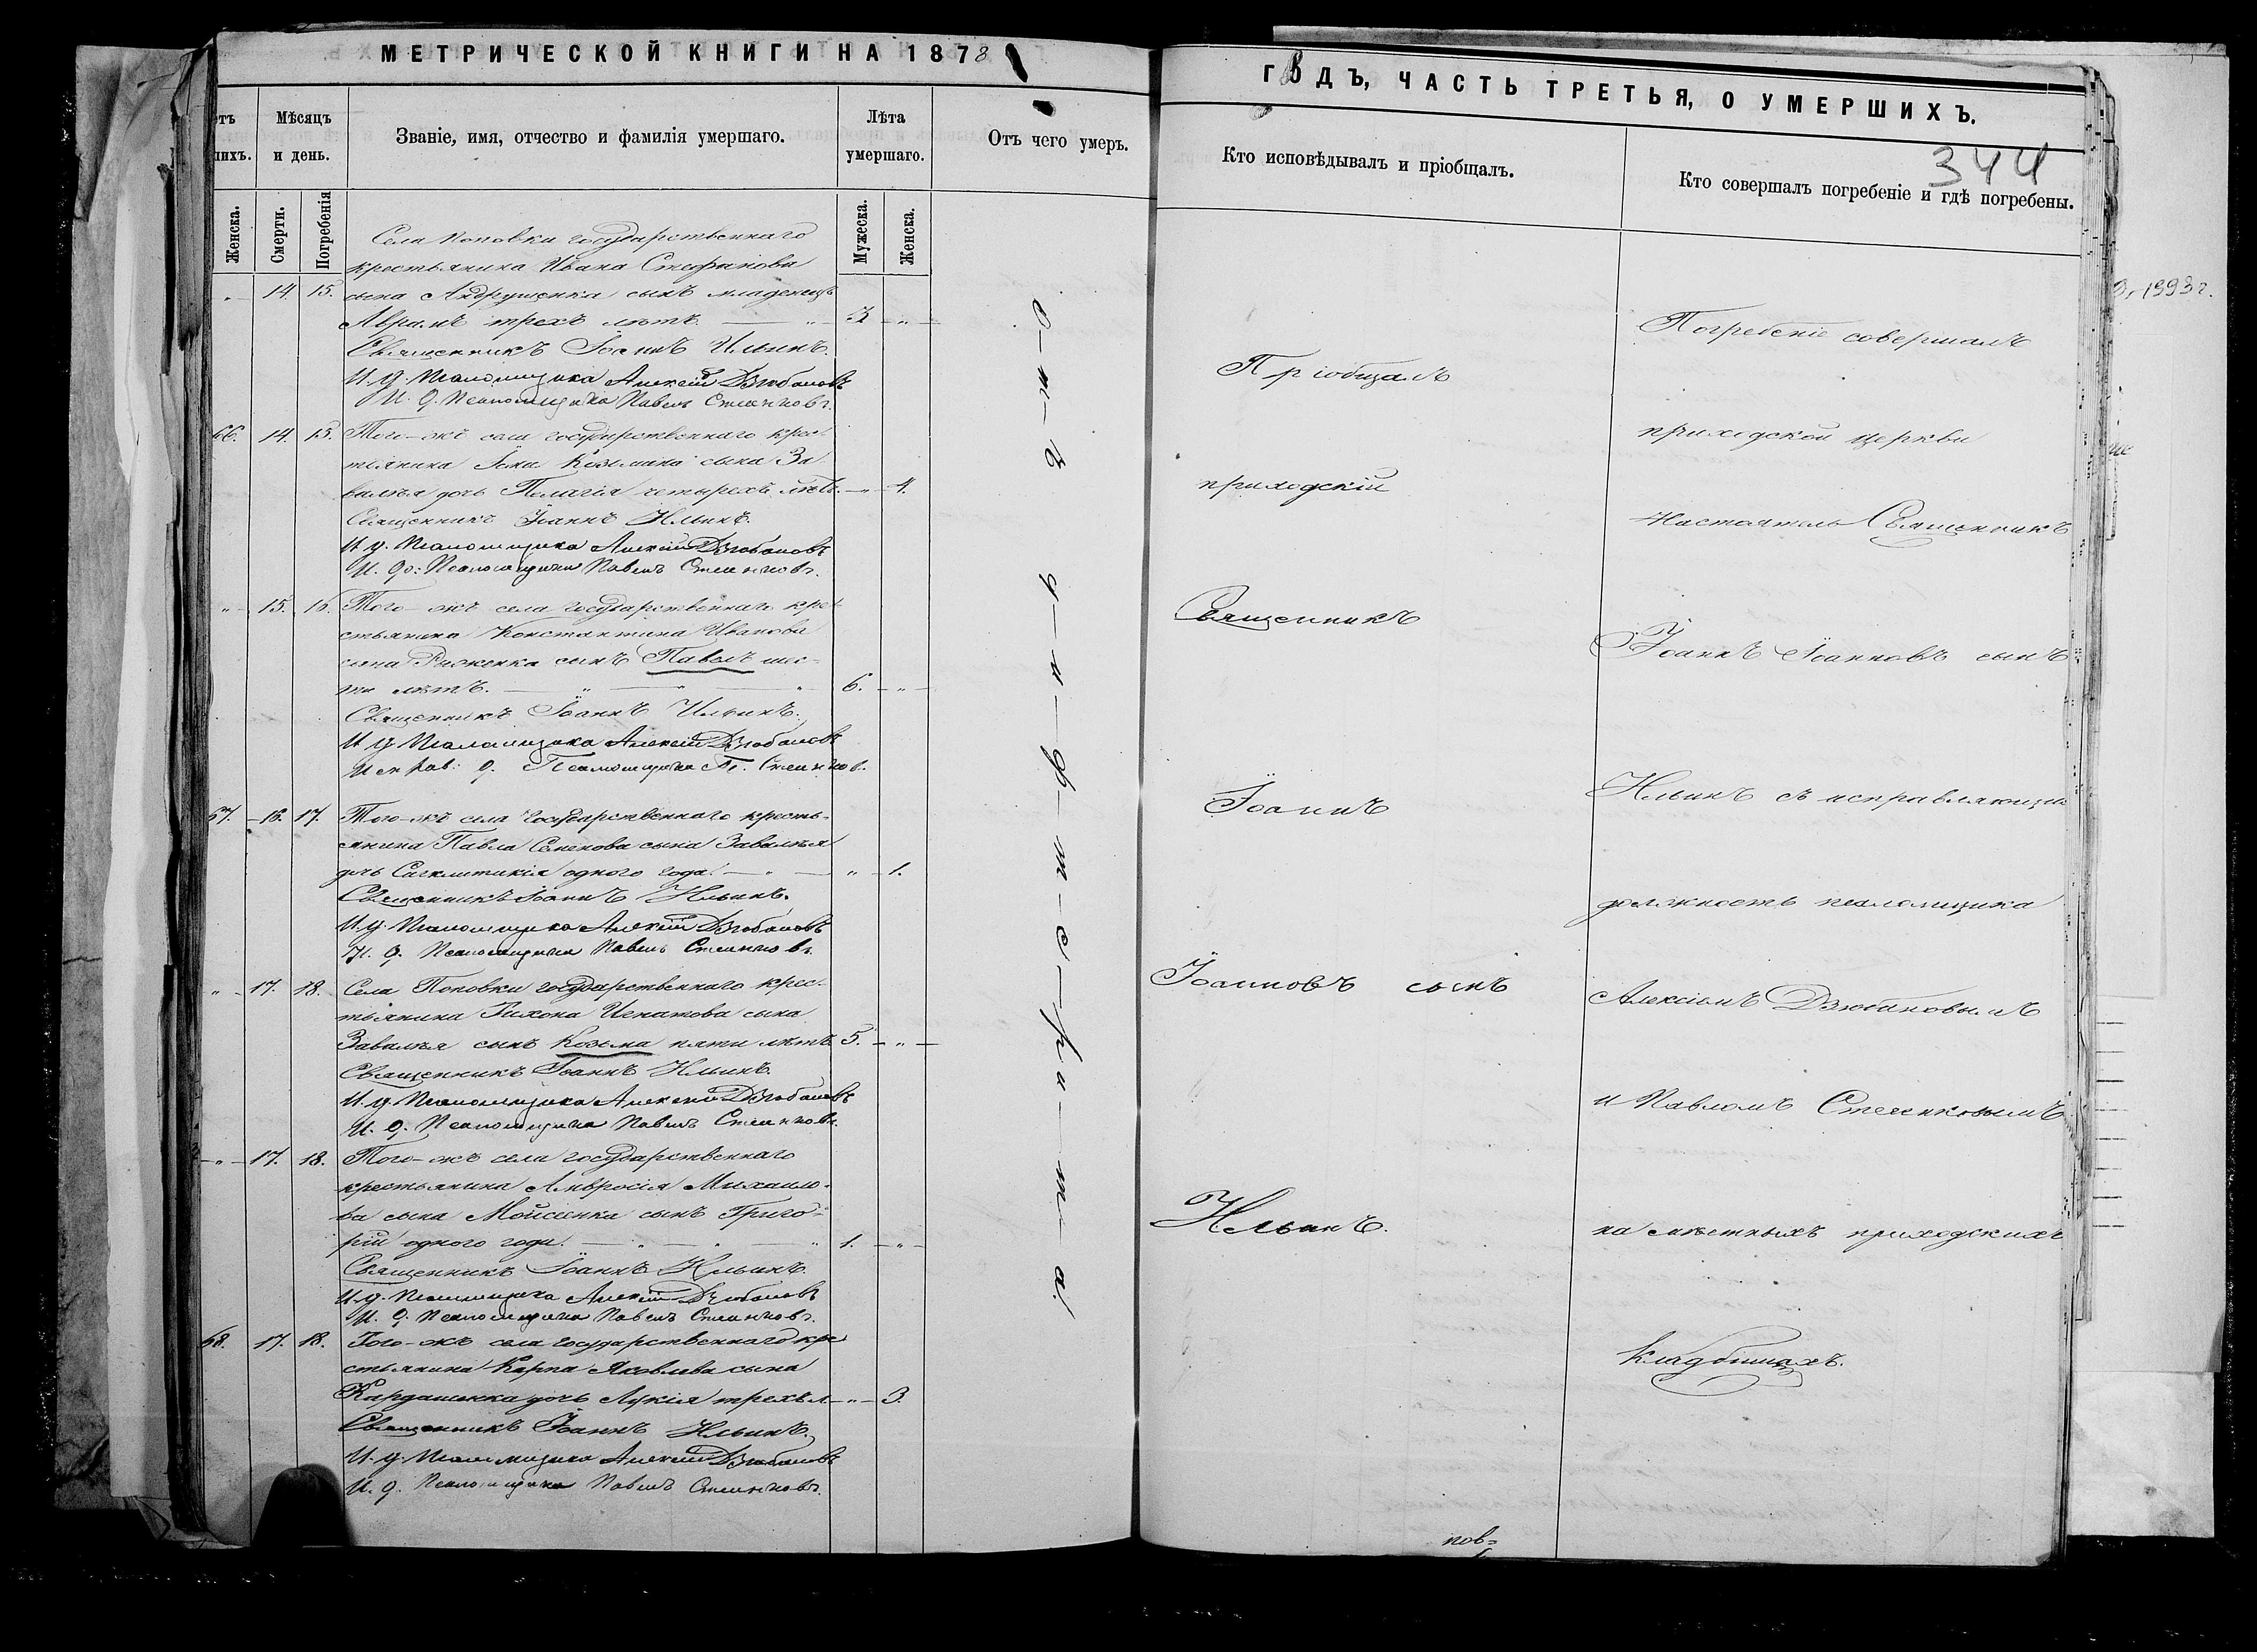 МЕТРИЧЕСКОЙ КНИГИ НА 1878
Мѣсяцъ и день.
Званіе, имя, отчество и фамилія умершаго.
Лѣта умершаго.
Отъ чего умеръ.
Женска.
Смерти.
Погребенія
Мужеска.
Женска.
Села Поповки государственнаго
крестьянина Ивана Стефанова
14. 15. сына Андрущенка сынъ младенецъ
Аврамъ трехъ лѣтъ. 3.
Священникъ Іоаннъ Ильинъ.
И. д. Псаломщика Алексій Дзюбановъ
И. д. Псаломщика Павелъ
66. 14. 15. Того-жъ села государственнаго крес-
тьянина Козьмина сына За
валѣя дочь Пелагія четырехъ лѣтъ. 4.
Священникъ Іоаннъ Ильинъ.
И. д. Псаломщика Алексій Дзюбановъ
И. д. Псаломщика Павелъ
15. 16. Того-жъ села государственнаго кре-
стьянина Константина Иванова
сына сынъ Павелъ шес-
ти лѣтъ. 6.
Священникъ Іоаннъ Ильинъ.
И. д. Псаломщика Алексій Дзюбановъ
Исправ. д. Псаломщика П.
67. 16. 17. Того-жъ села государственнаго кресть-
янина Павла Семенова сына Завалѣя
дочь Сигклитикія одного года. 1.
Священникъ Іоаннъ Ильинъ.
И. д. Псаломщика Алексій Дзюбановъ
И. д. Псаломщика Павелъ
17. 18. Села Поповки государственнаго крес-
тьянина Тихона Игнатова сына
Завалѣя сынъ Козьма пяти лѣтъ 5.
Священникъ Іоаннъ Ильинъ.
И. д. Псаломщика Алексій Дзюбановъ
И. д. Псаломщика Павелъ
17. 18. Того-жъ села государственнаго
крестьянина Амвросія Михаило-
ва сына Мойсеенка сынъ Григо-
рій одного года. 1.
Священникъ Іоаннъ Ильинъ.
И. д. Псаломщика Алексій Дзюбановъ
И. д. Псаломщика Павелъ
68. 17. 18. Того-жъ села государственнаго кре
стьянина Карпа Яковлева сына
Кардашенка дочь Лукія трехъ л. 3.
Священникъ Іоаннъ Ильинъ.
И. д. Псаломщика Алексій Дзюбановъ
И. д. Псаломщика Павелъ
ГОДЪ, ЧАСТЬ ТРЕТЬЯ, О УМЕРШИХЪ.
344
Кто исповѣдывалъ и пріобщалъ.
Кто совершалъ погребеніе и гдѣ погребены.
Пріобщалъ
приходскій
Священникъ
Іоаннъ
Іоанновъ сынъ
Ильинъ.
Погребеніе совершалъ
приходской церкви
Настоятель Священникъ
Іоаннъ Іоанновъ сынъ
Ильинъ съ исправляющи
должность псаломщика
Алексіемъ Дзюбановымъ
и Павломъ
на смѣтныхъ приходскихъ
кладбищахъ.
пов=
1993г.